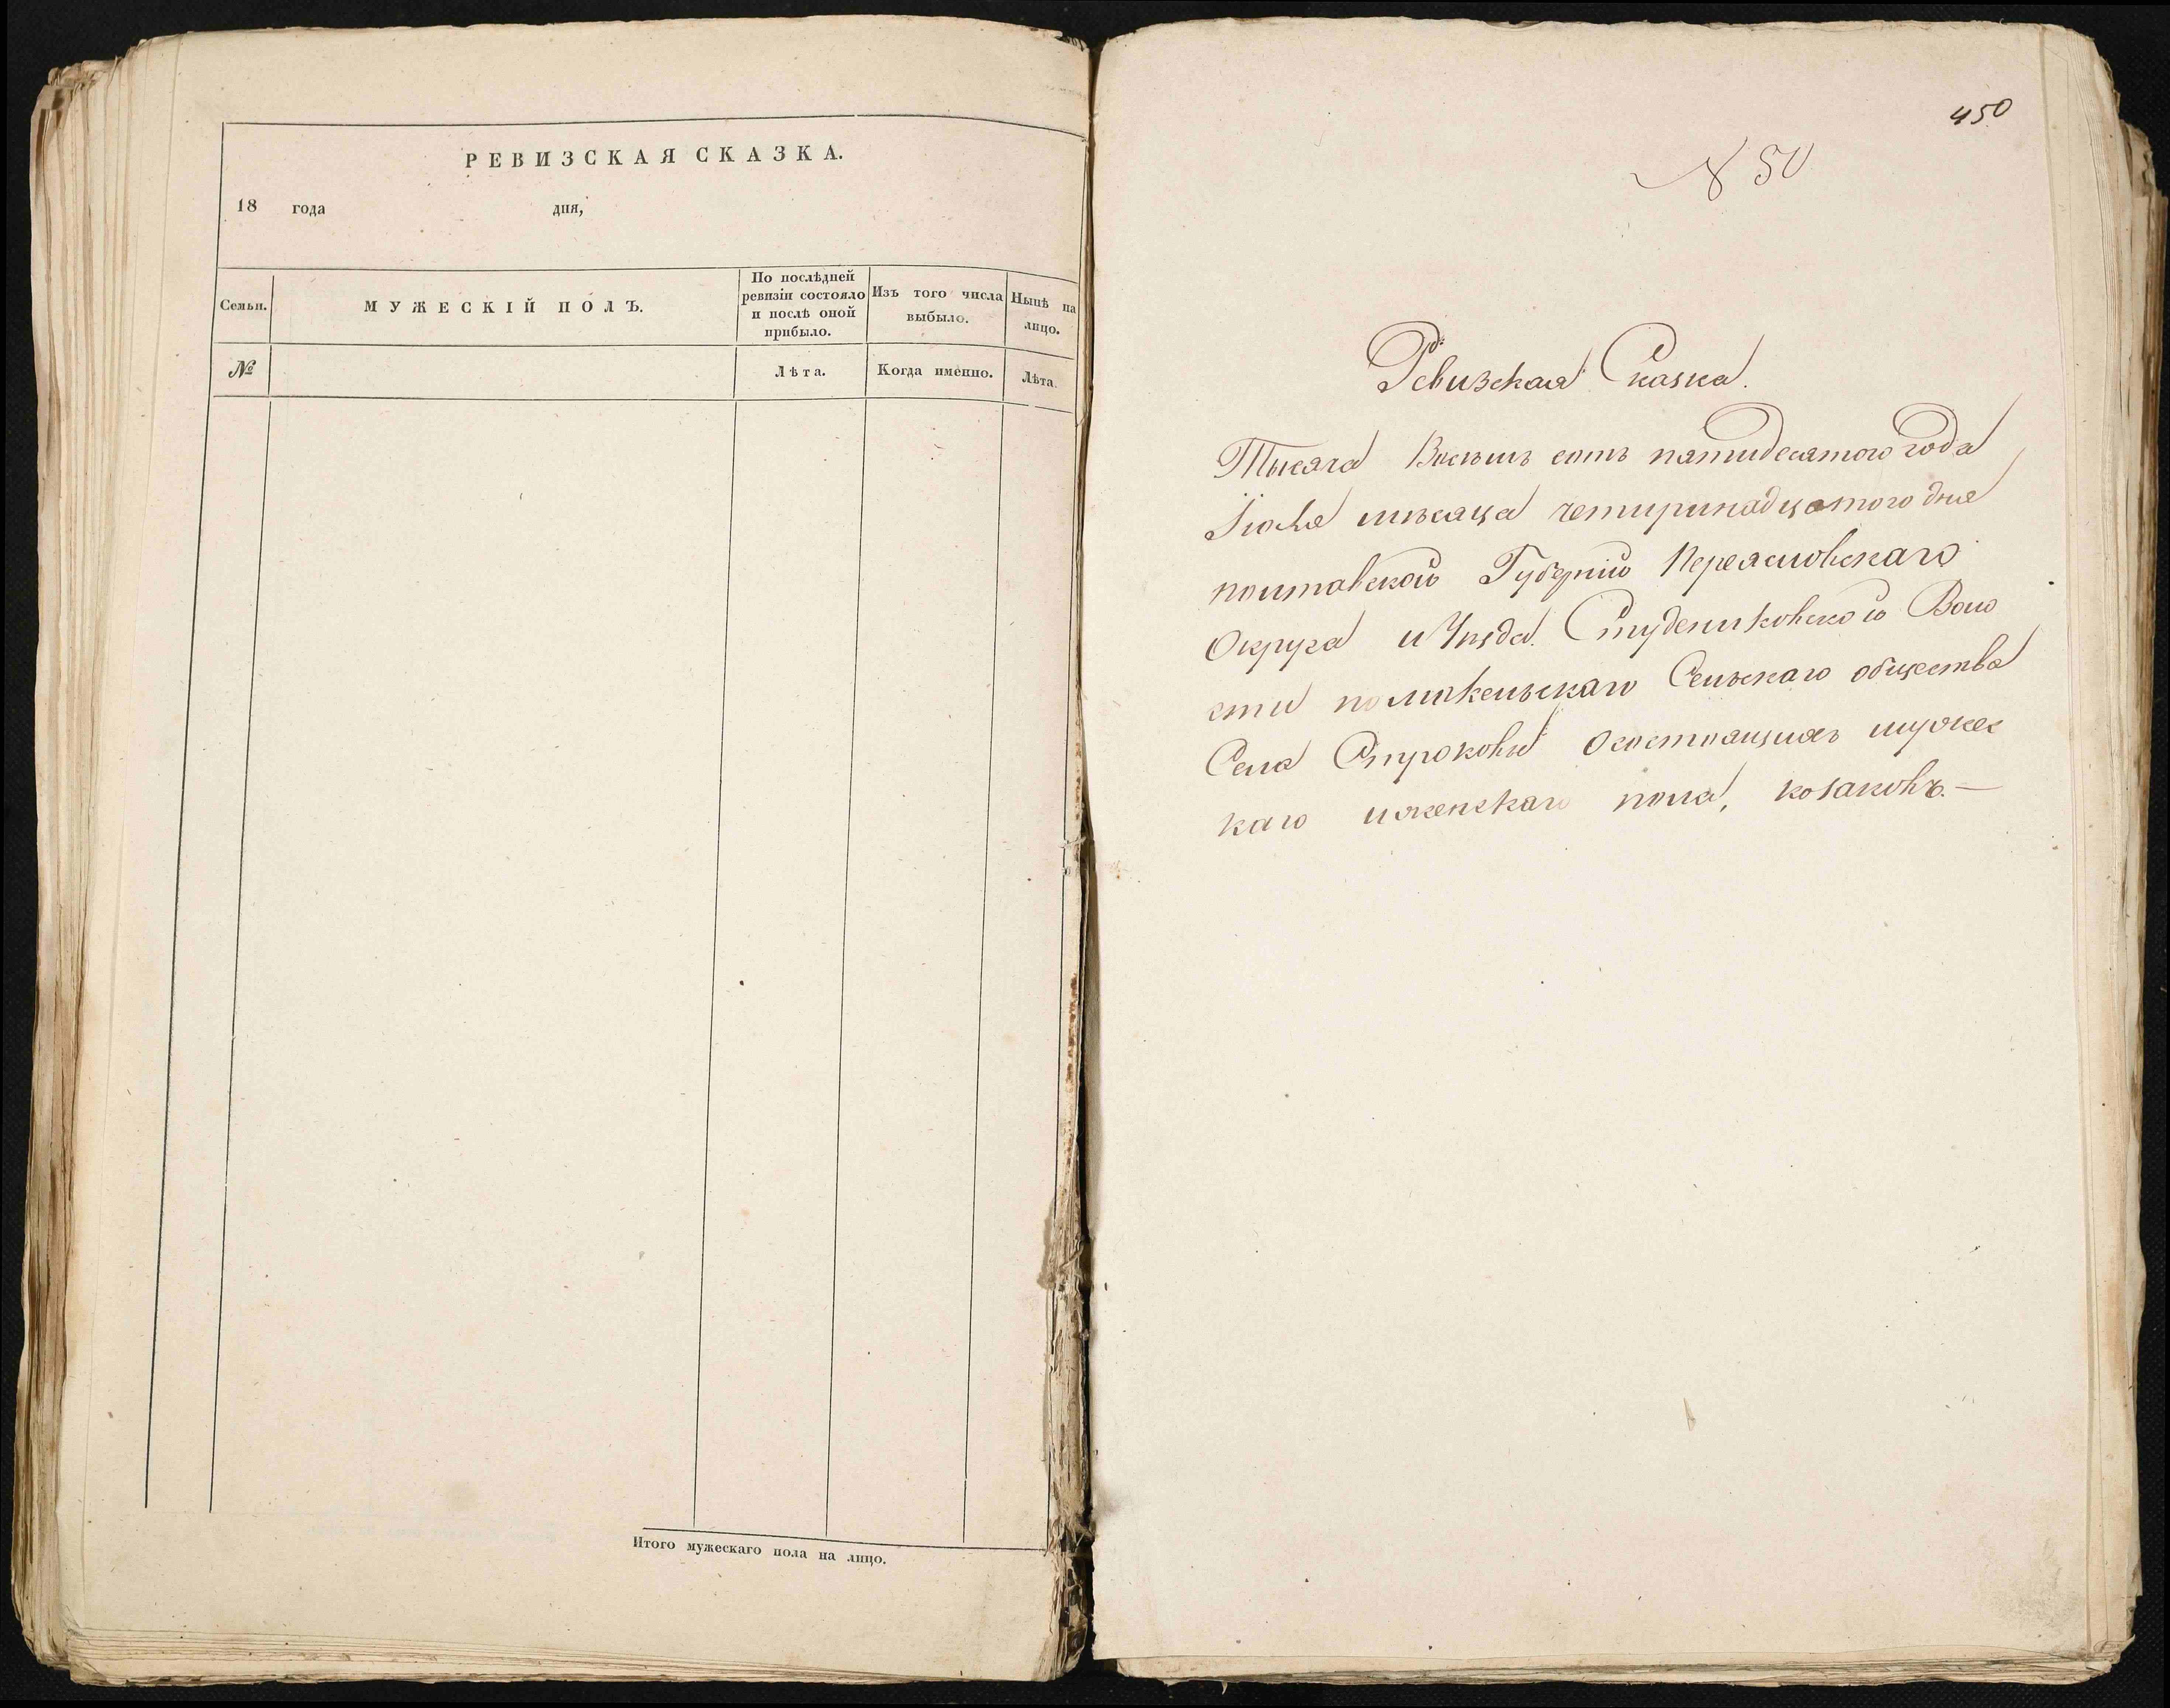 РЕВИЗСКАЯ СКАЗКА.
18 года дня,
Семьи.
МУЖЕСКІЙ ПОЛЪ.
По послѣдней
ревизіи состояло
и послѣ оной
прибыло.
Изъ того числа
выбыло.
Нынѣ на
лицо.
№
Лѣта.
Когда именно.
Лѣта.
Итого мужескаго пола на лицо.
450
N 50
Ревизская Сказка.
Тысяча Восемь сотъ пятидесятого года
Іюля мѣсяца четиринадцатого дня
полтавской Губерніи Переясловскаго
Округа и Уѣзда. Студениковской Воло
сти помокельскаго Сельскаго общества
Села Строковы о состоящихъ мужес
каго и женскаго пола, козаковъ.—